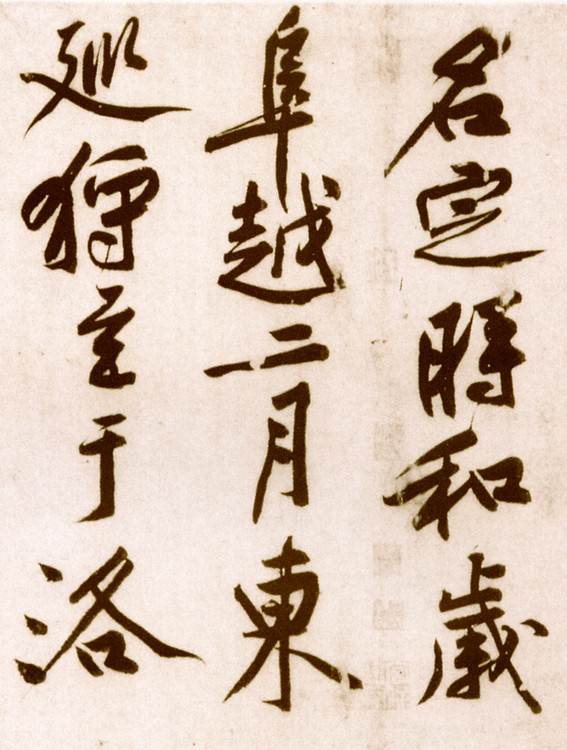 名定時和歲
阜越二月東
廵狩至于洛